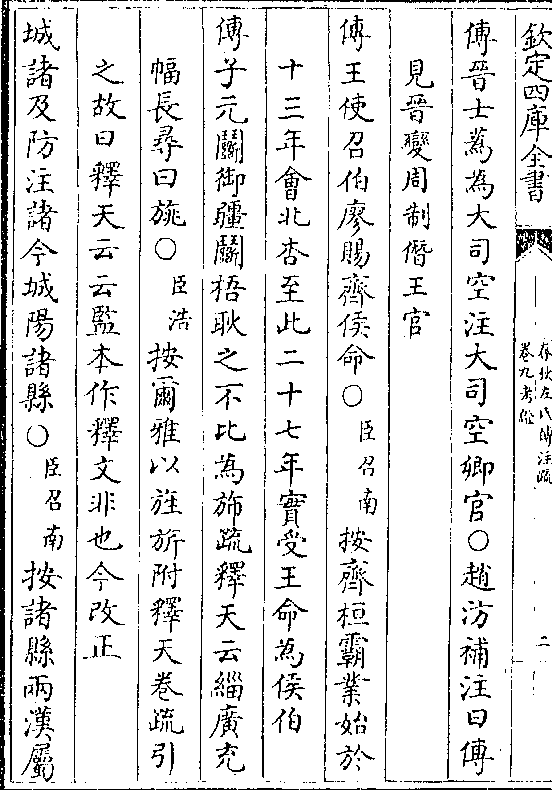 欽定四庫全書
春秋左氏傳注疏
卷九考證
二
傳晉士蒍為大司空注大司空卿官○趙汸補注曰傳
見晉變周制僭王官
傳王使召伯廖賜齊侯命○臣召南按齊桓霸業始於
十三年會北杏至此二十七年實受王命為侯伯
傳子元鬬御疆鬬梧耿之不比為斾疏釋天云緇廣充
幅長尋曰旐○臣浩按爾雅以旌旂附釋天卷疏引
之故曰釋天云云監本作釋文非也今改正
城諸及防注諸今城陽諸縣○臣召南按諸縣兩漢屬